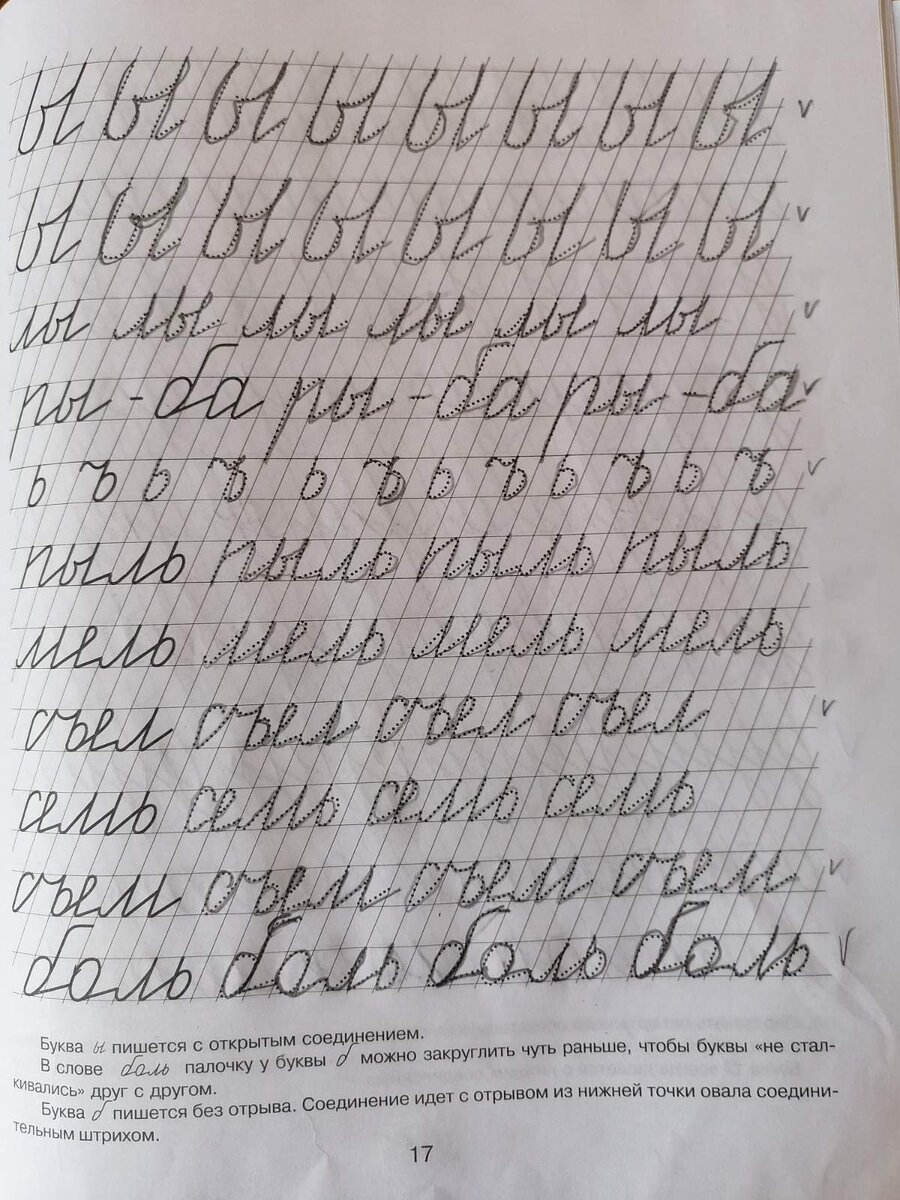 ы ы ы ы ы ы ы ы
ы ы ы ы ы ы ы ы
лы лы лы лы лы лы
ры-ба ры-ба ры-ба
ь ъ ь ъ ь ъ ь ъ ь ъ ь ъ
пыль пыль пыль пыль
мель мель мель мель
съел съел съел съел
семь семь семь семь
съем съем съем съем
боль боль боль боль
Буква ы пишется с открытым соединением.
В слове боль палочку у буквы б можно закруглить чуть раньше, чтобы буквы «не стал-
кивались» друг с другом.
Буква б пишется без отрыва. Соединение идет с отрывом из нижней точки овала соедини-
тельным штрихом.
17